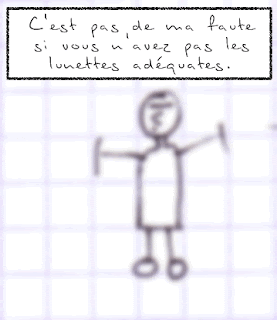 C'est pas de ma faute
si vous n'avez pas les
lunettes adéquates.